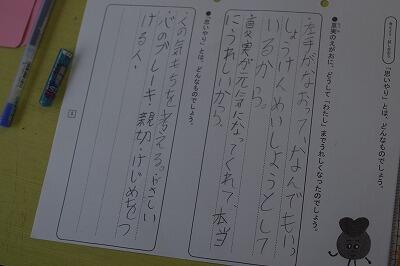 「思いやり」とは、どんなものでしょう。
●真実のえがおに、どうして「わたし」までうれしくなったのでしょう。
・左手がなおって、なんでもいっ
しょうけんめいしようとして
いるから。
・真実が元気になってくれて、本当
にうれしいから。
●「思いやり」とは、どんなものでしょう。
・人の気もちを考える。・やさしい
・心のブレーキ・親切・けじめをつ
ける人・